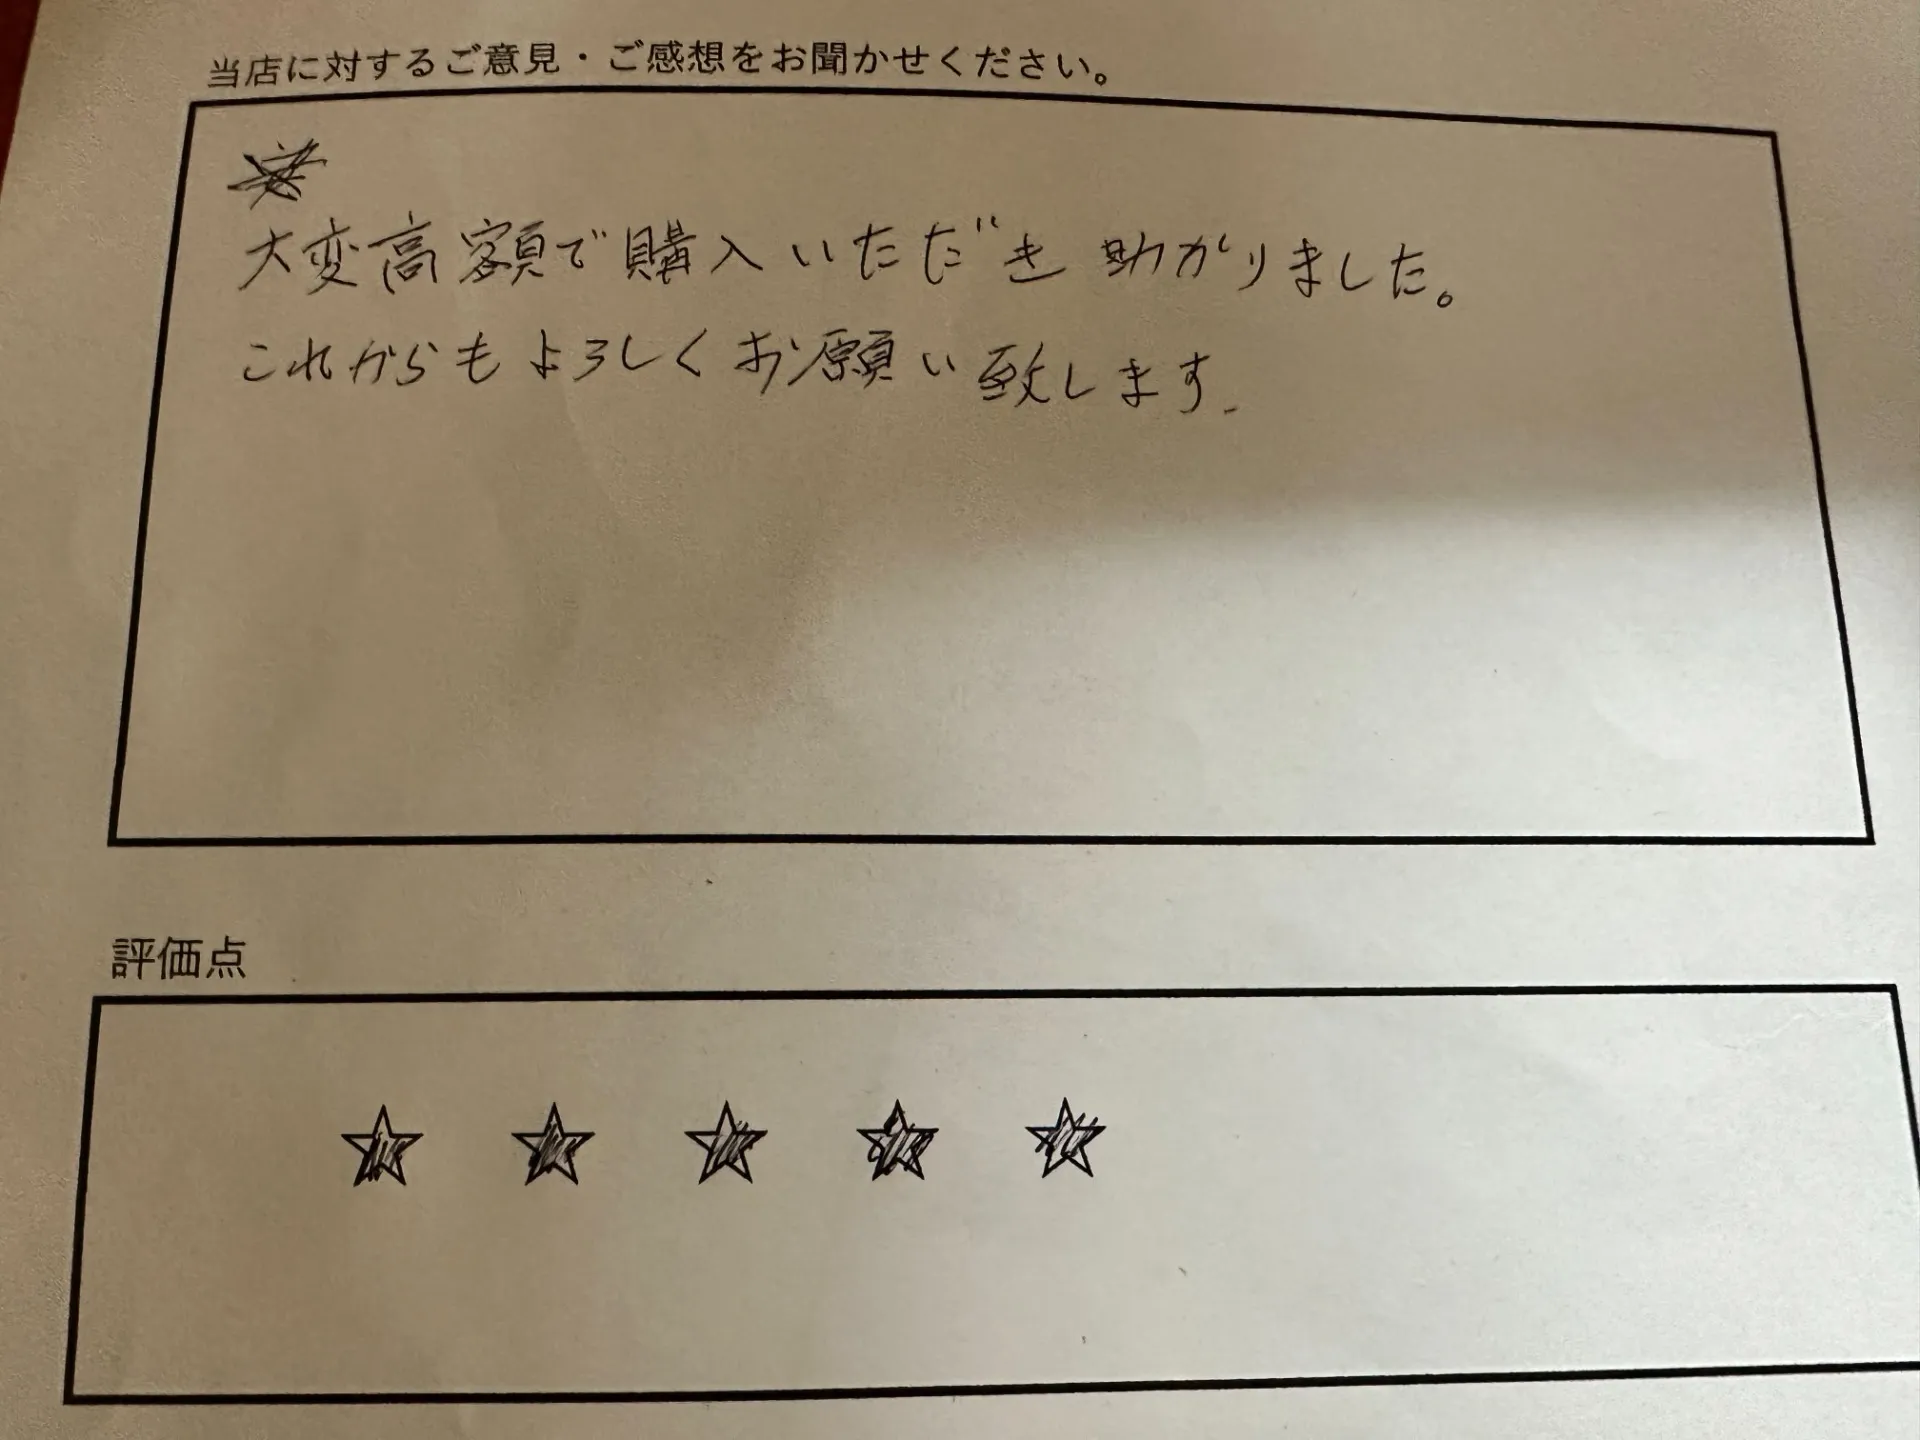 当店に対するご意見・ご感想をお聞かせください。
大変高額で購入いただき助かりました。
これからもよろしくお願い致します.
評価点
★ ★ ★ ★ ★